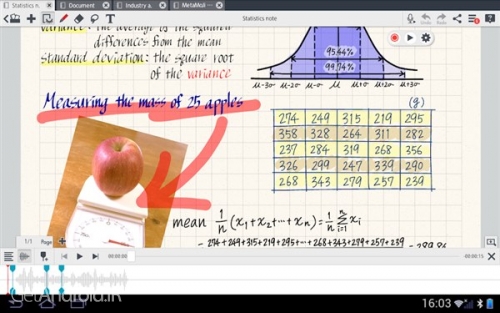 Statistics n..
Document
Industry a..
MetaMoJi ...
Statistics note
variance: the average of the squared
differences from the mean
standard deviation: the square root
of the variance
95.44%
99.74%
μ-3σ μ-2σ μ-σ μ μ+σ μ+2σ μ+3σ
Measuring the mass of 25 apples
(g)
274 249 315 219 295
358 328 264 311 282
237 284 319 268 356
326 299 247 339 290
268 343 279 257 239
mean 1/n (x₁+x₂+···+xₙ)=1/n Σ xᵢ
n
i=1
= 274+249+315+219+295+···+268+343+279+257+239
1/1 Page
00:00:00
00:00:15
GetAndroid.ir
16:03